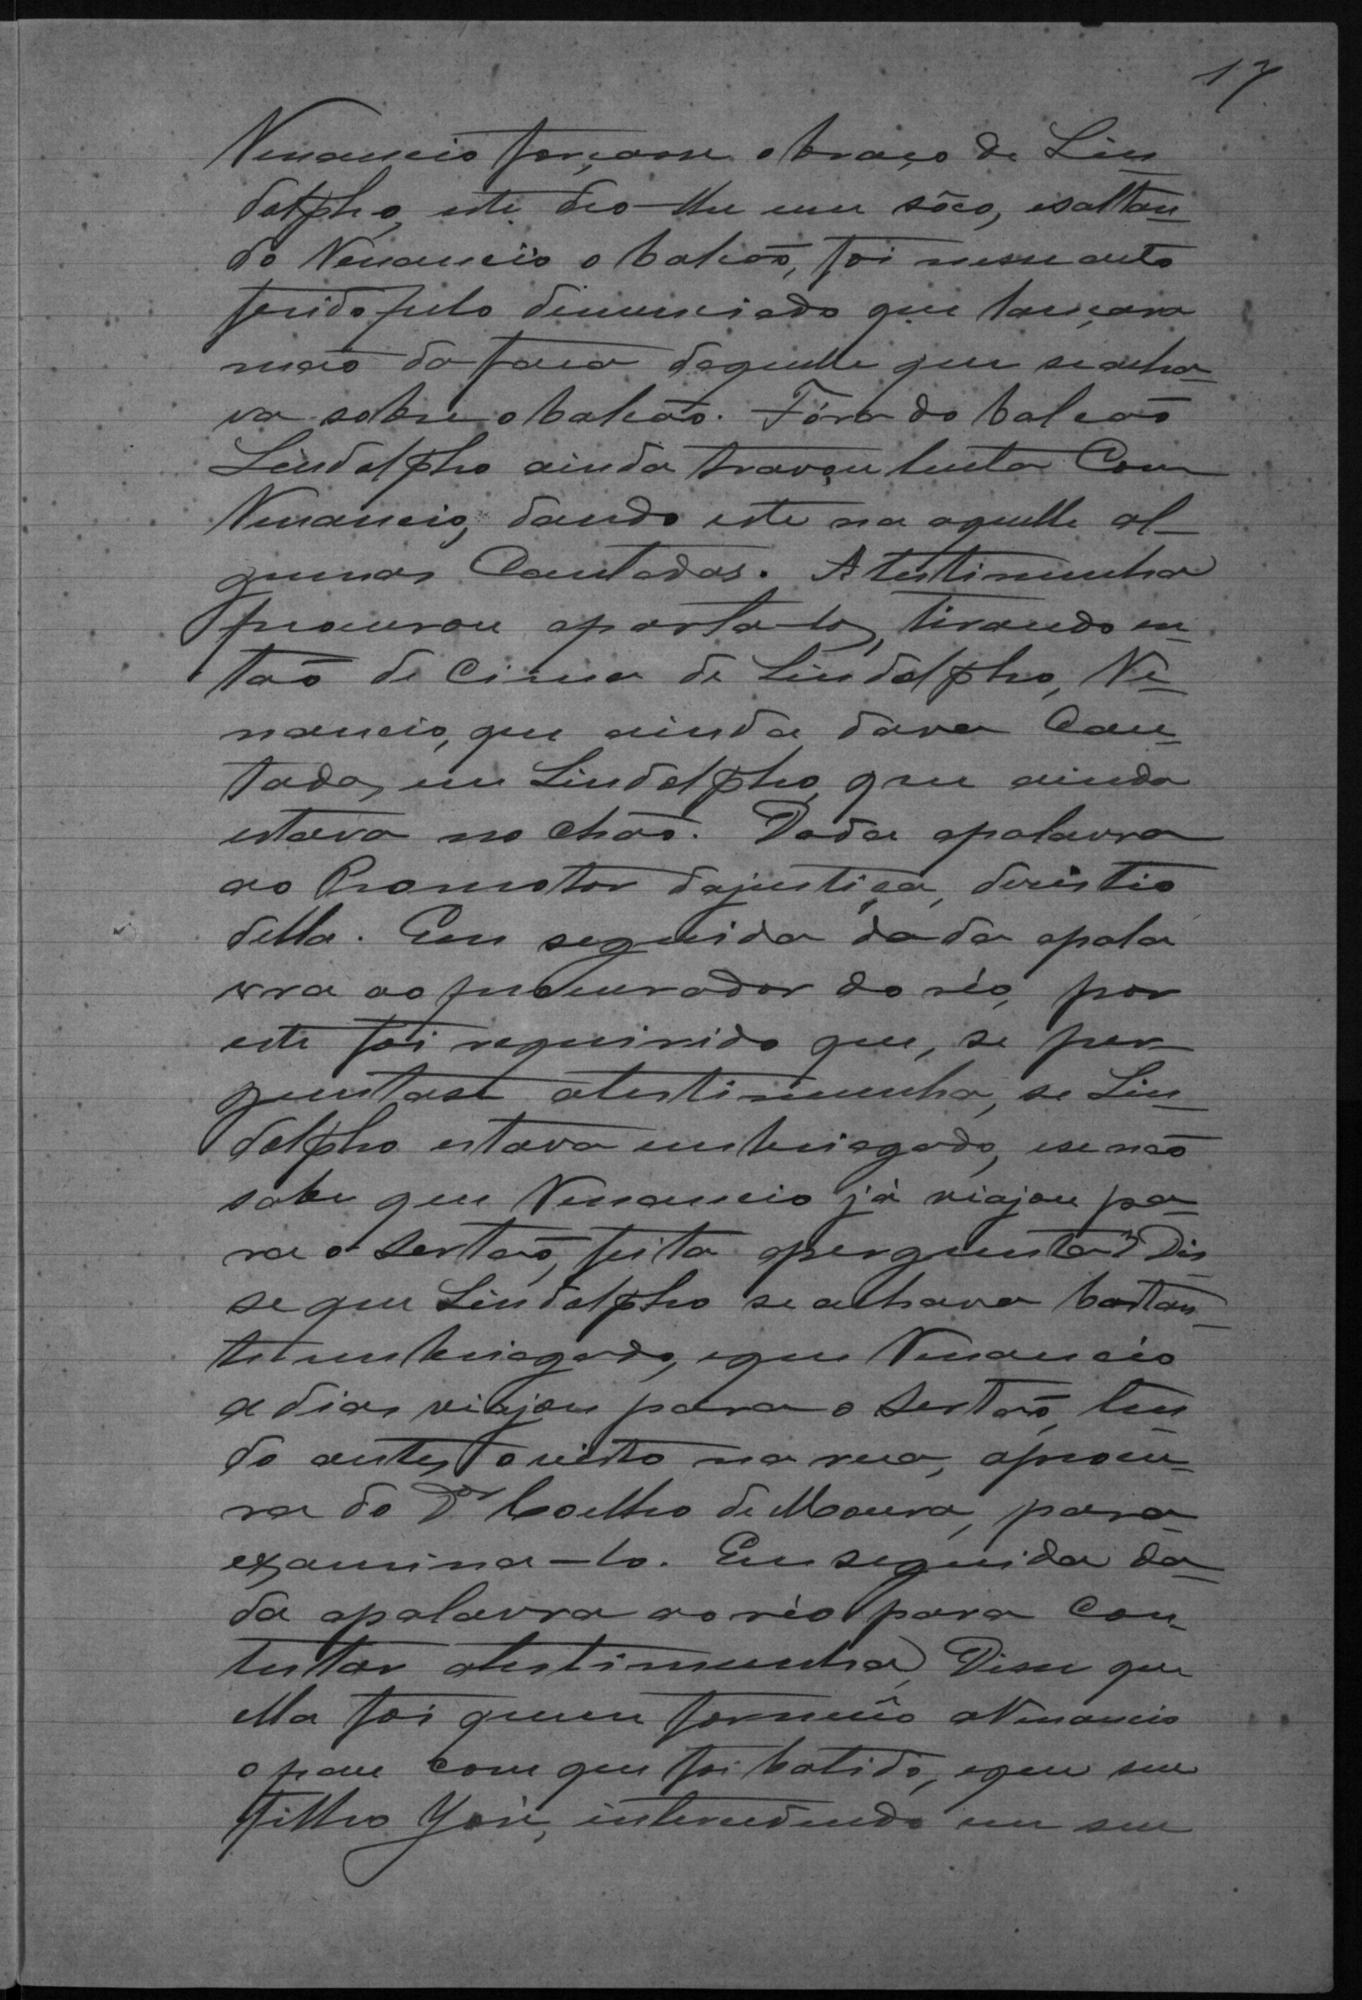 17
Venancio forçasse o braço de Lin
dolpho, este deo-lhe um sôco, e saltan
do Venancio o balcão, foi nesse acto
ferido pelo denunciado que lançara
mão da faca daquelle que se acha-
va sobre o balcão. Fóra do balcão
Lindolpho ainda travou lucta Com
Venancio, dando este na aquelle al-
gumas Cacetadas. A testimunha
procurou aparta-los, tirando en
tão de cima de Lindolpho, Ve-
nancio, que ainda dava Cace
tadas em Lindolpho, que ainda
estava no chão. Dada apalavra
ao Promotor dajustiça, desistio
della. Em seguida dada apala
vra ao procurador do réo, por
este foi requirido que, se per
guntase atestimunha, se Lin
dolpho estava embriagado, e se não
sabe que Venancio já viajou pa-
ra o sertão, feita apergunta? Dis
se que Lindolpho se achava bastan
te embriagado, eque Venancio
a dias viajou para o sertão, ten
do antes o visto na rua, aprocu-
ra do Dor Coelho de Moura, para
examina-lo. Em seguida da-
da apalavra ao réo para Con-
testar atestimunha, Disse que
ella foi quem forneceu aVenancio
o pau com que foi batido, eque seu
filho José, intervindo em seu